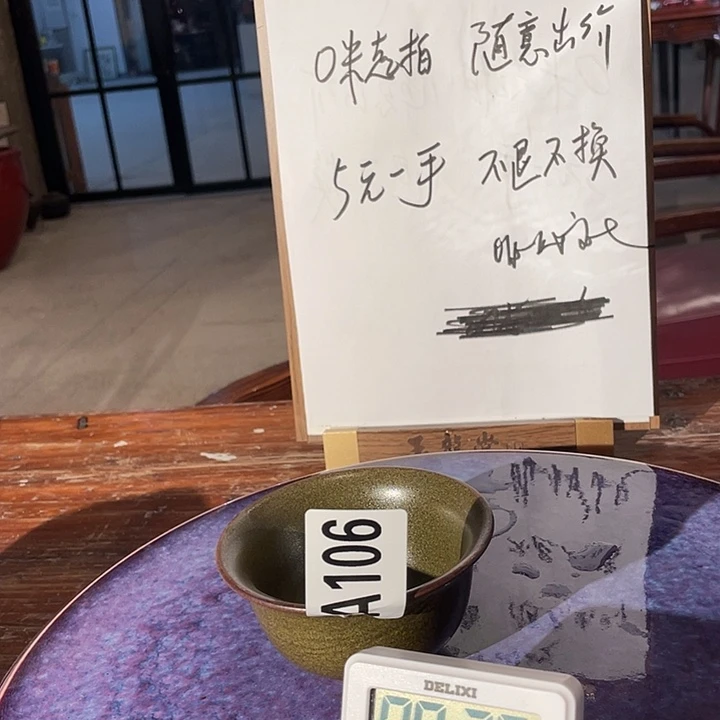 0米起拍 随意出价
5元一手 不退不换
A106
DELIXI